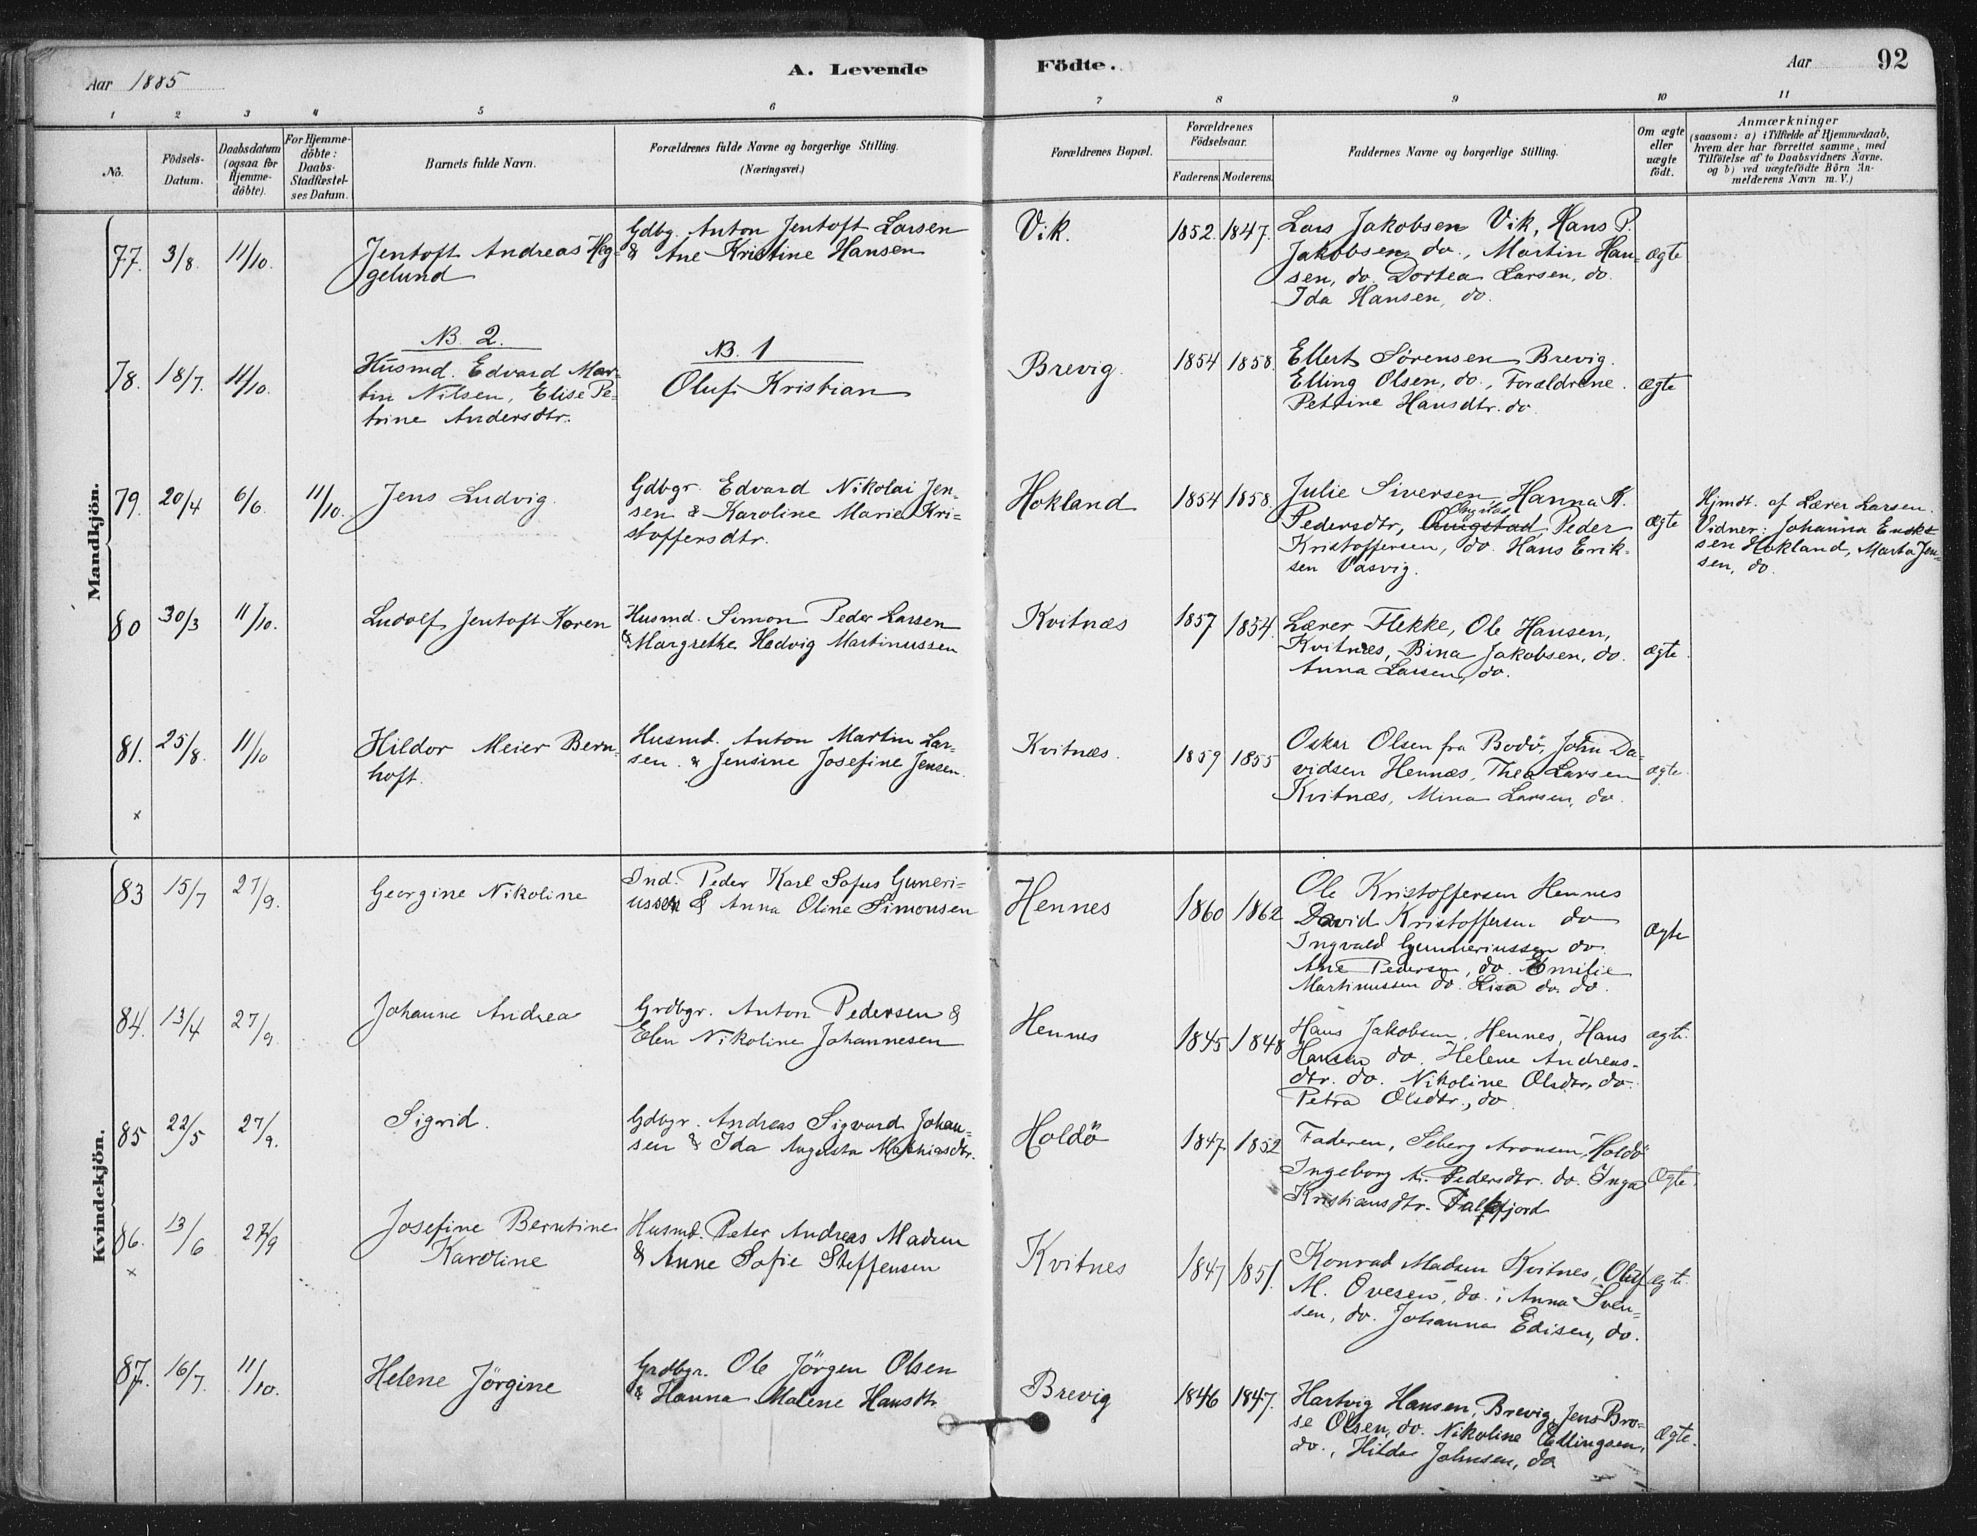 Aar 1885
A. Levende Födte.
Aar 92
1 2 3 4 5 6 7 8 9 10 11
No.
Födsels-
Datum.
Daabsdatum
(ogsaa for
Hjemme-
döbte).
For Hjemme-
döbte:
Daabs-
Stadfæstel-
ses Datum.
Barnets fulde Navn.
Forældrenes fulde Navne og borgerlige Stilling.
(Næringsvei.)
Forældrenes Bopæl.
Forældrenes
Födselsaar.
Faderens. Moderens.
Faddernes Navne og borgerlige Stilling.
Om ægte
eller
uægte
födt.
Anmærkninger
(saasom: a) i Tilfælde af Hjemmedaab,
hvem der har forrettet samme, med
Tilföielse af to Daabsvidners Navne.
og b) ved uægtefödte Börn An-
melderens Navn m. V.)
Mandkjön.
77. 3/8. 11/10.
Jentoft Andreas Heg-
gelund
Gdbg. Anton Jentoft Larsen
& Ane Kristine Hansen
Vik.
1852. 1847.
Lars Jakobsen Vik, Hans P.
Jakobsen do., Martin Han-
sen, do. Dortea Larsen, do.
Ida Hansen, do.
ægte
78. 18/7. 11/10.
NB. 2.
Husmd. Edvard Mar-
tin Nilsen, Elise Pe-
trine Andersdtr.
NB. 1
Oluf Kristian
Brevig.
1854 1858.
Ellert Sörensen Brevig.
Elling Olsen, do., Forældrene.
Petrine Hansdtr. do.
ægte
79. 20/4 6/6. 11/10.
Jens Ludvig.
Gdbgr. Edvard Nikolai Jen-
sen & Karoline Marie Kri-
stoffersdtr.
Hokland
1854 1858.
Julie Siversen, Hanna K.
Pedersdtr, Peder
Kristoffersen, do. Hans Erik-
sen Vasvig.
ægte
Hjmdt. af Lærer Larsen.
Vidner: Johanna
sen Hokland, Marta Jen-
sen, do.
80 30/3 11/10.
Ludolf Jentoft Koren
Husmd. Simon Peder Larsen
& Margrethe Hedvig Martinussen
Kvitnæs
1857 1854.
Lærer Flekke, Ole Hansen,
Kvitnæs, Bina Jakobsen, do.
Anna Larsen, do.
ægte
81. 25/8. 11/10
Hildor Meier Bern-
hoft.
Husmd. Anton Martin Lar-
sen. & Jensine Josefine Jensen.
Kvitnæs.
1859 1855
Oskar Olsen fra Bodö, John Da-
vidsen Hennæs, Thea Larsen
Kvitnæs, Mina Larsen, do.
ægte.
x
Kvindekjön.
83 15/7 27/9.
Georgine Nikoline
Ind. Peder Karl Sofus Guneri-
ussen & Anna Oline Simonsen
Hennes
1860 1862
Ole Kristoffersen Hennes
David Kristoffersen do
Ingvald Gunneriussen do.
Ane Pedersen, do. Emilie
Martinussen do. Lisa do. do.
Ægte
84. 13/4 27/9.
Johanne Andrea
Grdbgr. Anton Pedersen &
Elen Nikoline Johannesen
Hennes
1845 1848
Hans Jakobsen, Hennes, Hans
Hansen do. Helene Andreas-
dtr. do. Nikoline Olsdtr., do.
Petra Olsdtr., do.
ægte.
85 22/5 27/9.
Sigrid.
Gdbgr. Andreas Sigvard Johan-
sen & Ida Augusta Mathiasdtr.
Holdö
1847 1852
Faderen, Seberg Aronsen, Holdö
Ingeborg A. Pedersdtr. do. Inga
Kristiansdtr. Falkfjord
Ægte.
86. 13/6 27/9
x
Josefine Berntine
Karoline
Husmd. Peter Andreas Madsen
& Anne Sofie Steffensen
Kvitnes
1847 1851.
Konrad Madsen Kvitnes, Oluf
M. Ovesen, do.; Anna Sven-
sen, do. Johanna Edisen, do.
ægte.
87. 16/7. 11/10.
Helene Jörgine
Grdbgr. Ole Jörgen Olsen
& Hanna Malene Hansdtr.
Brevig
1846 1847.
Hartvig Hansen, Brevig, Jens Bro-
se Olsen, do. Nikoline Ellingsen,
do., Hilda Johnsen, do
Ægte.